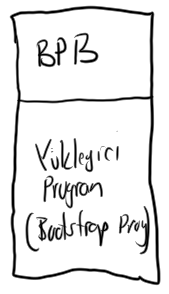 BPB
Yükleyici
Program
(Bootstrap Prog)